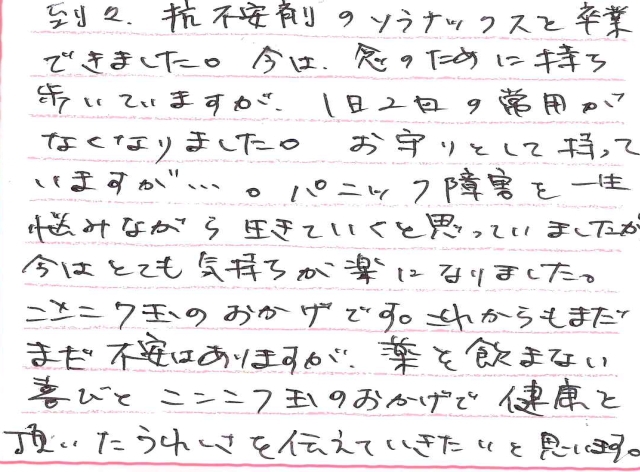 到り、抗不安剤のソラナックスと卒業
できました。今は、念のために持ち
歩いていますが、1日2回の常用が
なくなりました。お守りとして持って
いますが…。パニック障害を一生
悩みながら生きていくと思っていましたが
今はとても気持ちが楽になりました。
ニンニク玉のおかげです。これからもまだ
まだ不安はありますが、薬を飲まない
喜びとニンニク玉のおかげで健康を
頂いたうれしさを伝えていきたいと思います。